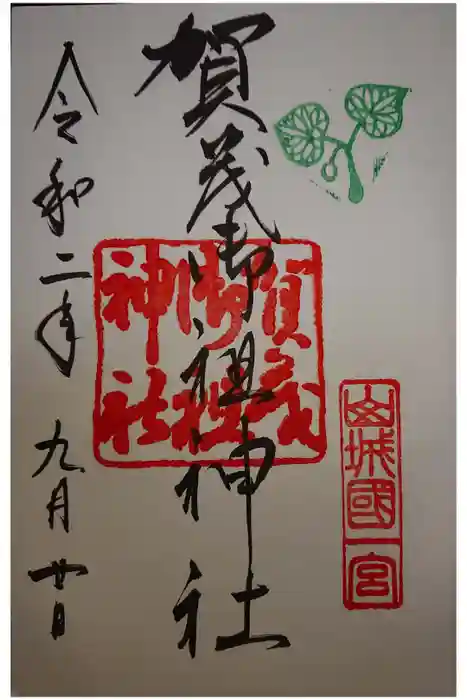 山城國一宮
賀茂御祖神社
賀茂
御祖
神社
令和二年 九月廿日